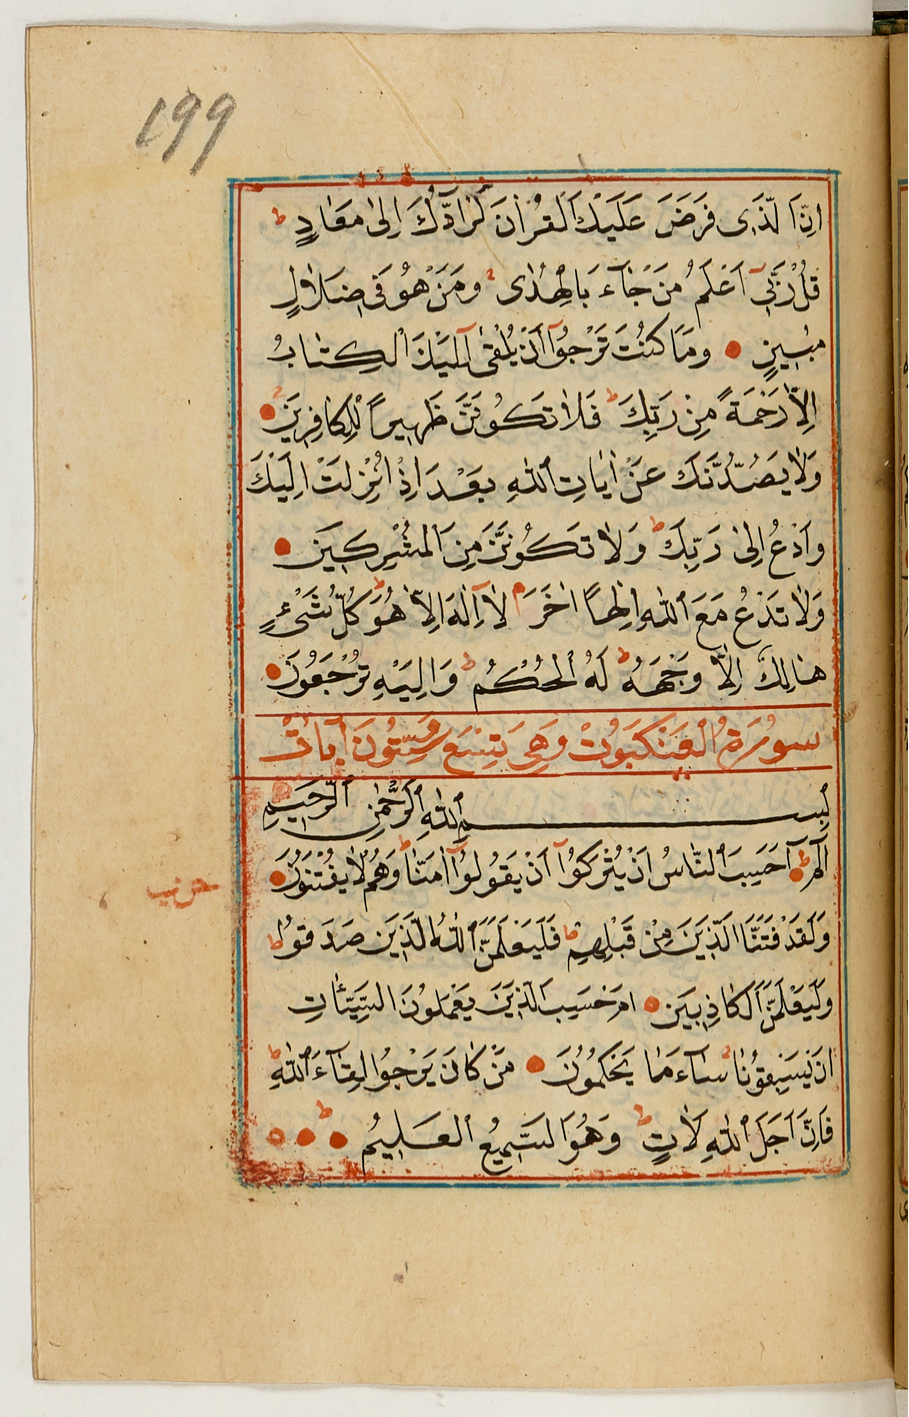 ١٩٩
اِنَّ الَّذٖى فَرَضَ عَلَيْكَ الْقُرْاٰنَ لَرَٓادُّكَ اِلٰى مَعَادٍ ط
قُلْ رَبّٖٓى اَعْلَمُ مَنْ جَٓاءَ بِالْهُدٰى وَمَنْ هُوَ فٖى ضَلَالٍ
مُبٖينٍ وَمَا كُنْتَ تَرْجُوٓا اَنْ يُلْقٰٓى اِلَيْكَ الْكِتَابُ
اِلَّا رَحْمَةً مِنْ رَبِّكَ ط فَلَا تَكُونَنَّ ظَهٖيرًا لِلْكَافِرٖينَ
وَلَا يَصُدُّنَّكَ عَنْ اٰيَاتِ اللّٰهِ بَعْدَ اِذْ اُنْزِلَتْ اِلَيْكَ
وَادْعُ اِلٰى رَبِّكَ ط وَلَا تَكُونَنَّ مِنَ الْمُشْرِكٖينَ
وَلَا تَدْعُ مَعَ اللّٰهِ اِلٰهًا اٰخَرَ م لَٓا اِلٰهَ اِلَّا هُوَ ط كُلُّ شَیْءٍ
هَالِكٌ اِلَّا وَجْهَهُ ط لَهُ الْحُكْمُ ط وَاِلَيْهِ تُرْجَعُونَ
سُورَةُ الْعَنْكَبُوتْ وَهِيَ تِسْعَ وَسِتُّونَ آيَاتْ
بِسْمِ اللّٰهِ الرَّحْمٰنِ الرَّحٖيمِ
الٓمٓ ط اَحَسِبَ النَّاسُ اَنْ يُتْرَكُوٓا اَنْ يَقُولُوٓا اٰمَنَّا وَهُمْ لَا يُفْتَنُونَ
حزب
وَلَقَدْ فَتَنَّا الَّذٖينَ مِنْ قَبْلِهِمْ فَلَيَعْلَمَنَّ اللّٰهُ الَّذٖينَ صَدَقُوا
وَلَيَعْلَمَنَّ الْكَاذِبٖينَ اَمْ حَسِبَ الَّذٖينَ يَعْمَلُونَ السَّيِّئَاتِ
اَنْ يَسْبِقُونَا سَٓاءَ مَا يَحْكُمُونَ مَنْ كَانَ يَرْجُوا لِقَٓاءَ اللّٰهِ ط
فَاِنَّ اَجَلَ اللّٰهِ لَاٰتٍ ط وَهُوَ السَّمٖيعُ الْعَلٖيمُ ط